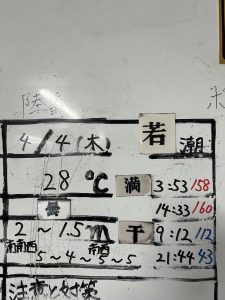 陸
4/4(木) 若潮
28℃ 満 3:53 158
曇 14:33 160
2~1.5m 干 9:12 112
南南西 南西
5~4~5~5 21:44 43
注意と対策